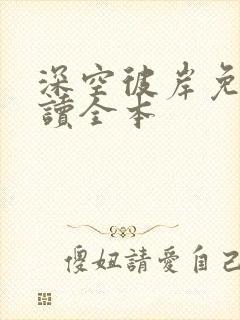 深空彼岸免
讀全本
傻妞請愛自己